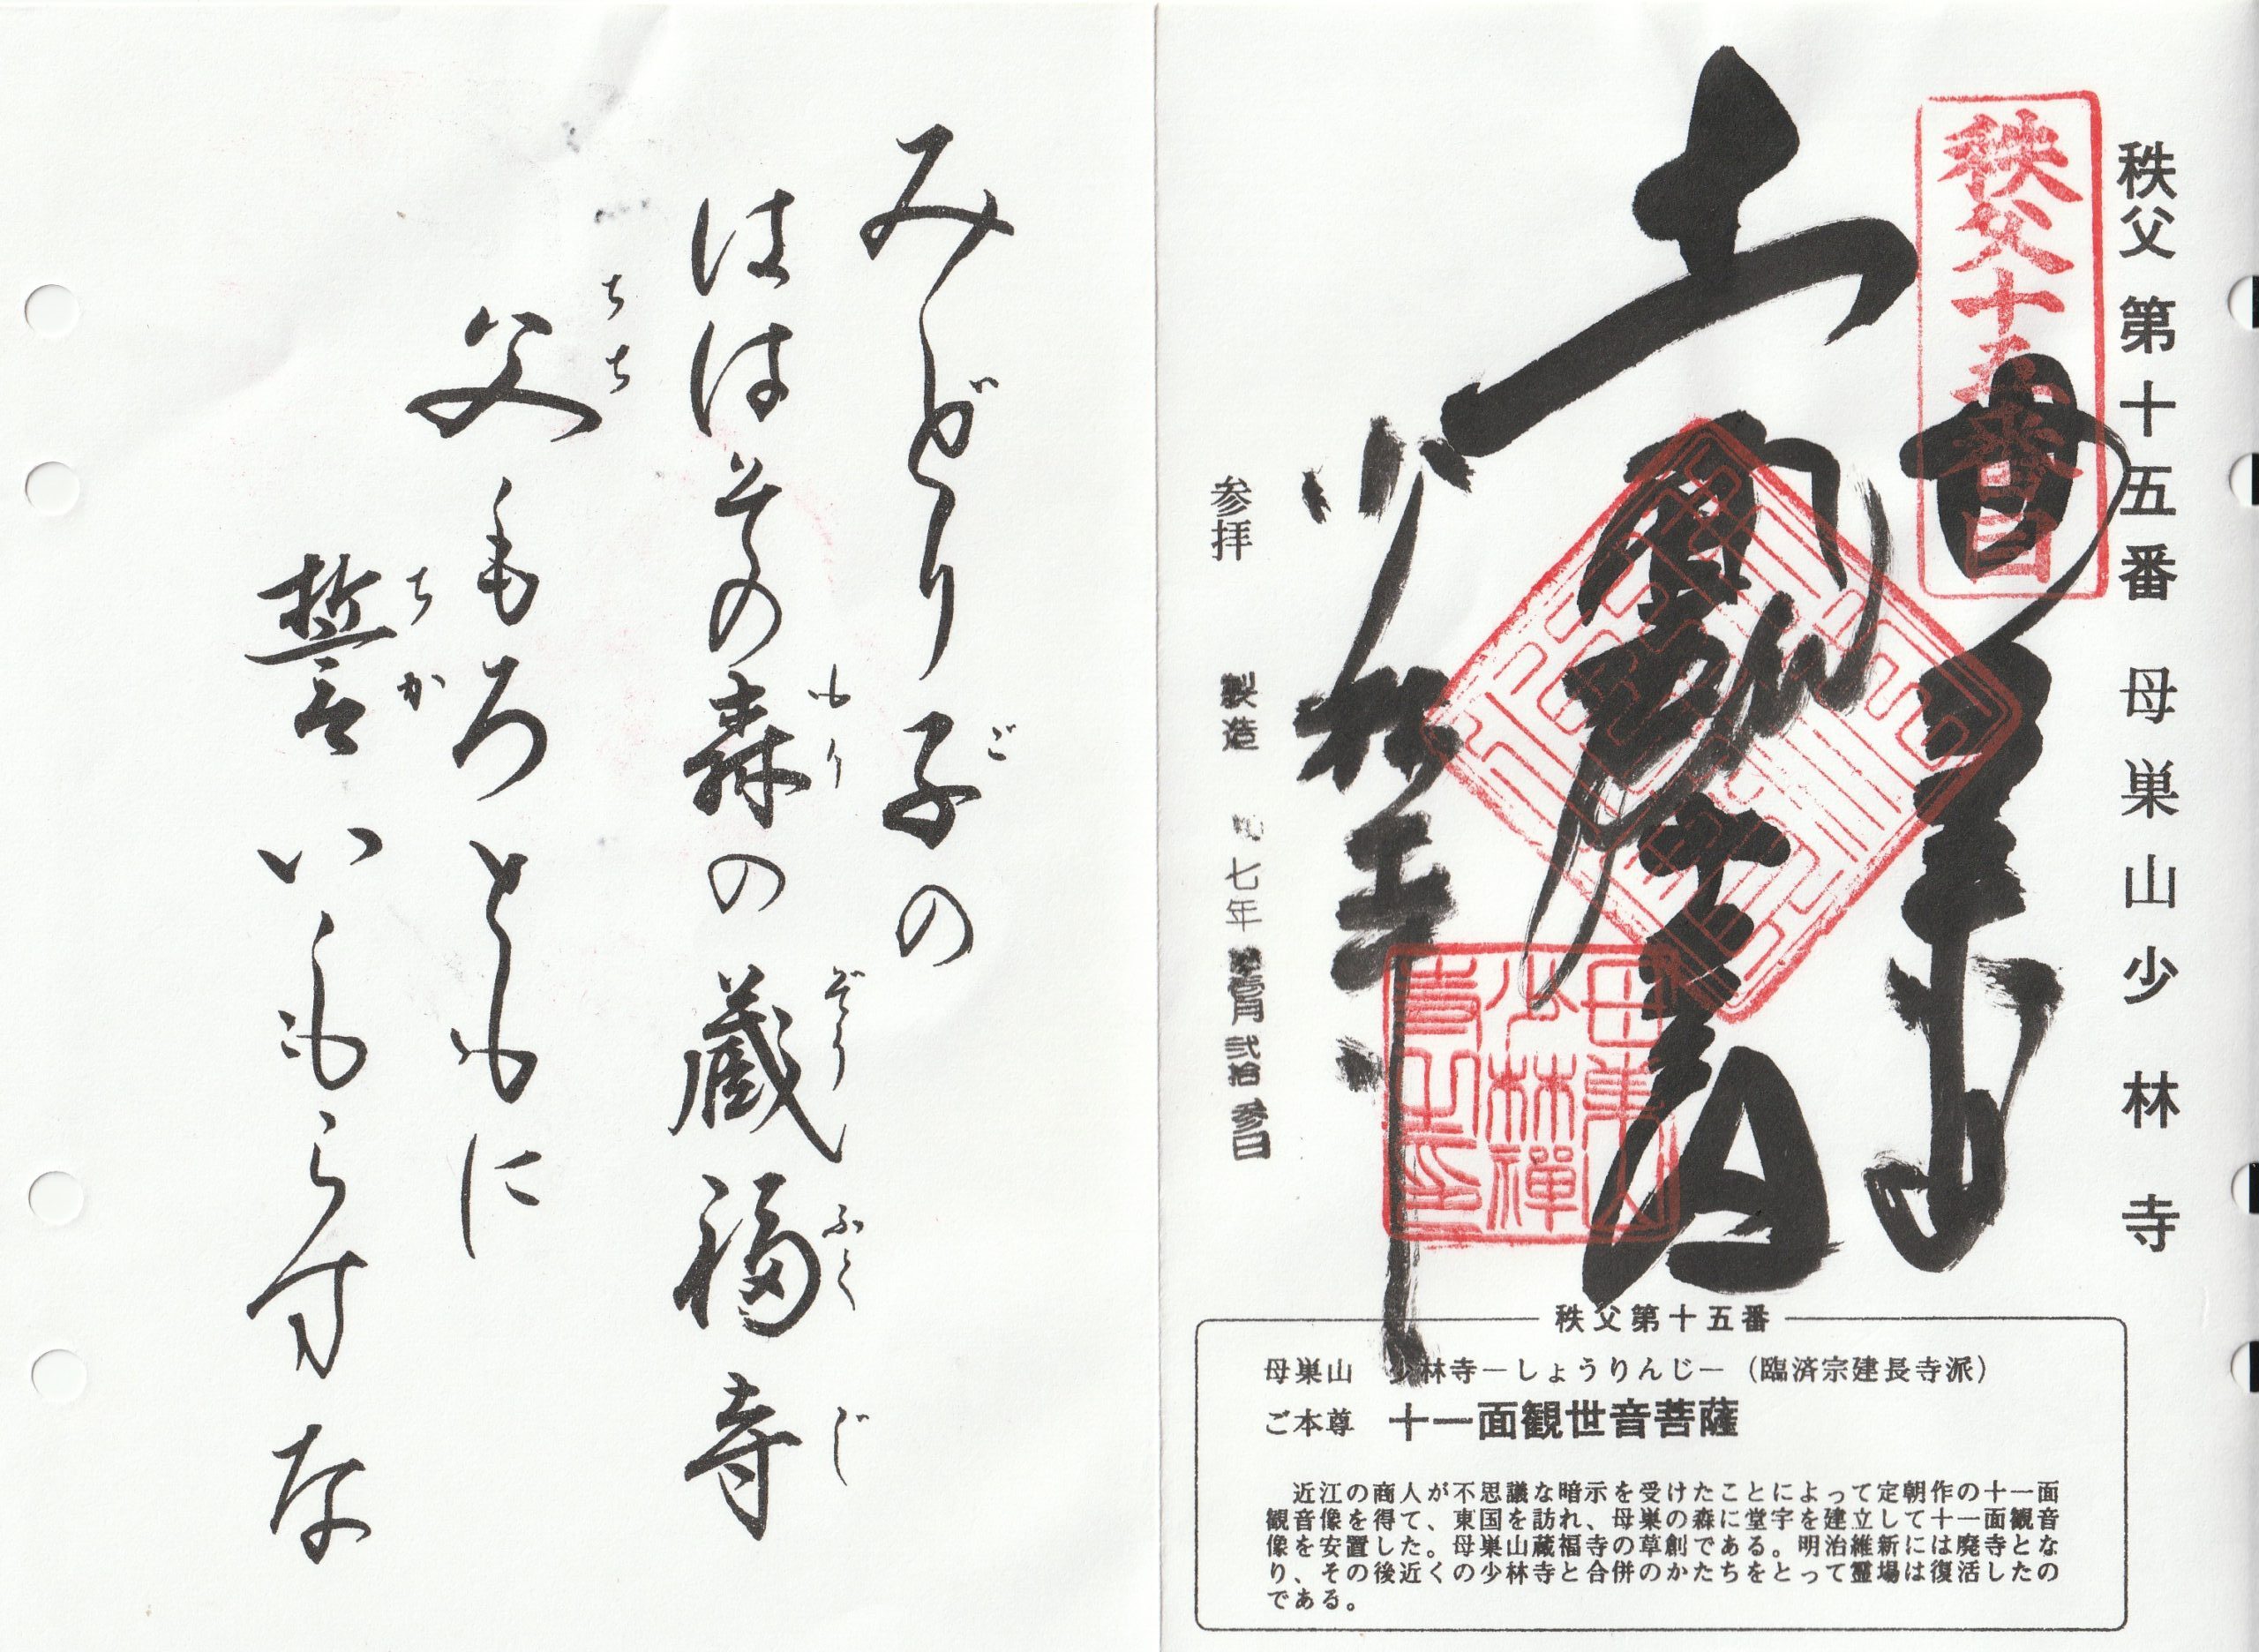 秩父第十五番 母巣山少林寺
秩父十五番目
奉拝
十一面観世音
少林寺
母巣山
少林禅
寺之印
参拝
七年
月弐拾参日
みどり子の
ご
ははその森の蔵福寺
もり
ぞうふくじ
父もろともに
ちち
誓いもらすな
ちか
秩父第十五番
母巣山 少林寺－しょうりんじ－（臨済宗建長寺派）
ご本尊 十一面観世音菩薩
近江の商人が不思議な暗示を受けたことによって定朝作の十一面
観音像を得て、東国を訪れ、母巣の森に堂宇を建立して十一面観音
像を安置した。母巣山蔵福寺の草創である。明治維新には廃寺とな
り、その後近くの少林寺と合併のかたちをとって霊場は復活したの
である。